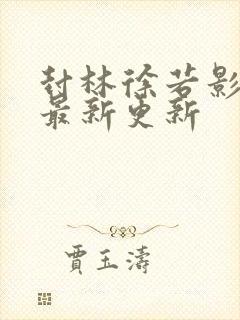 封林徐若影
最新更新
賈玉濤